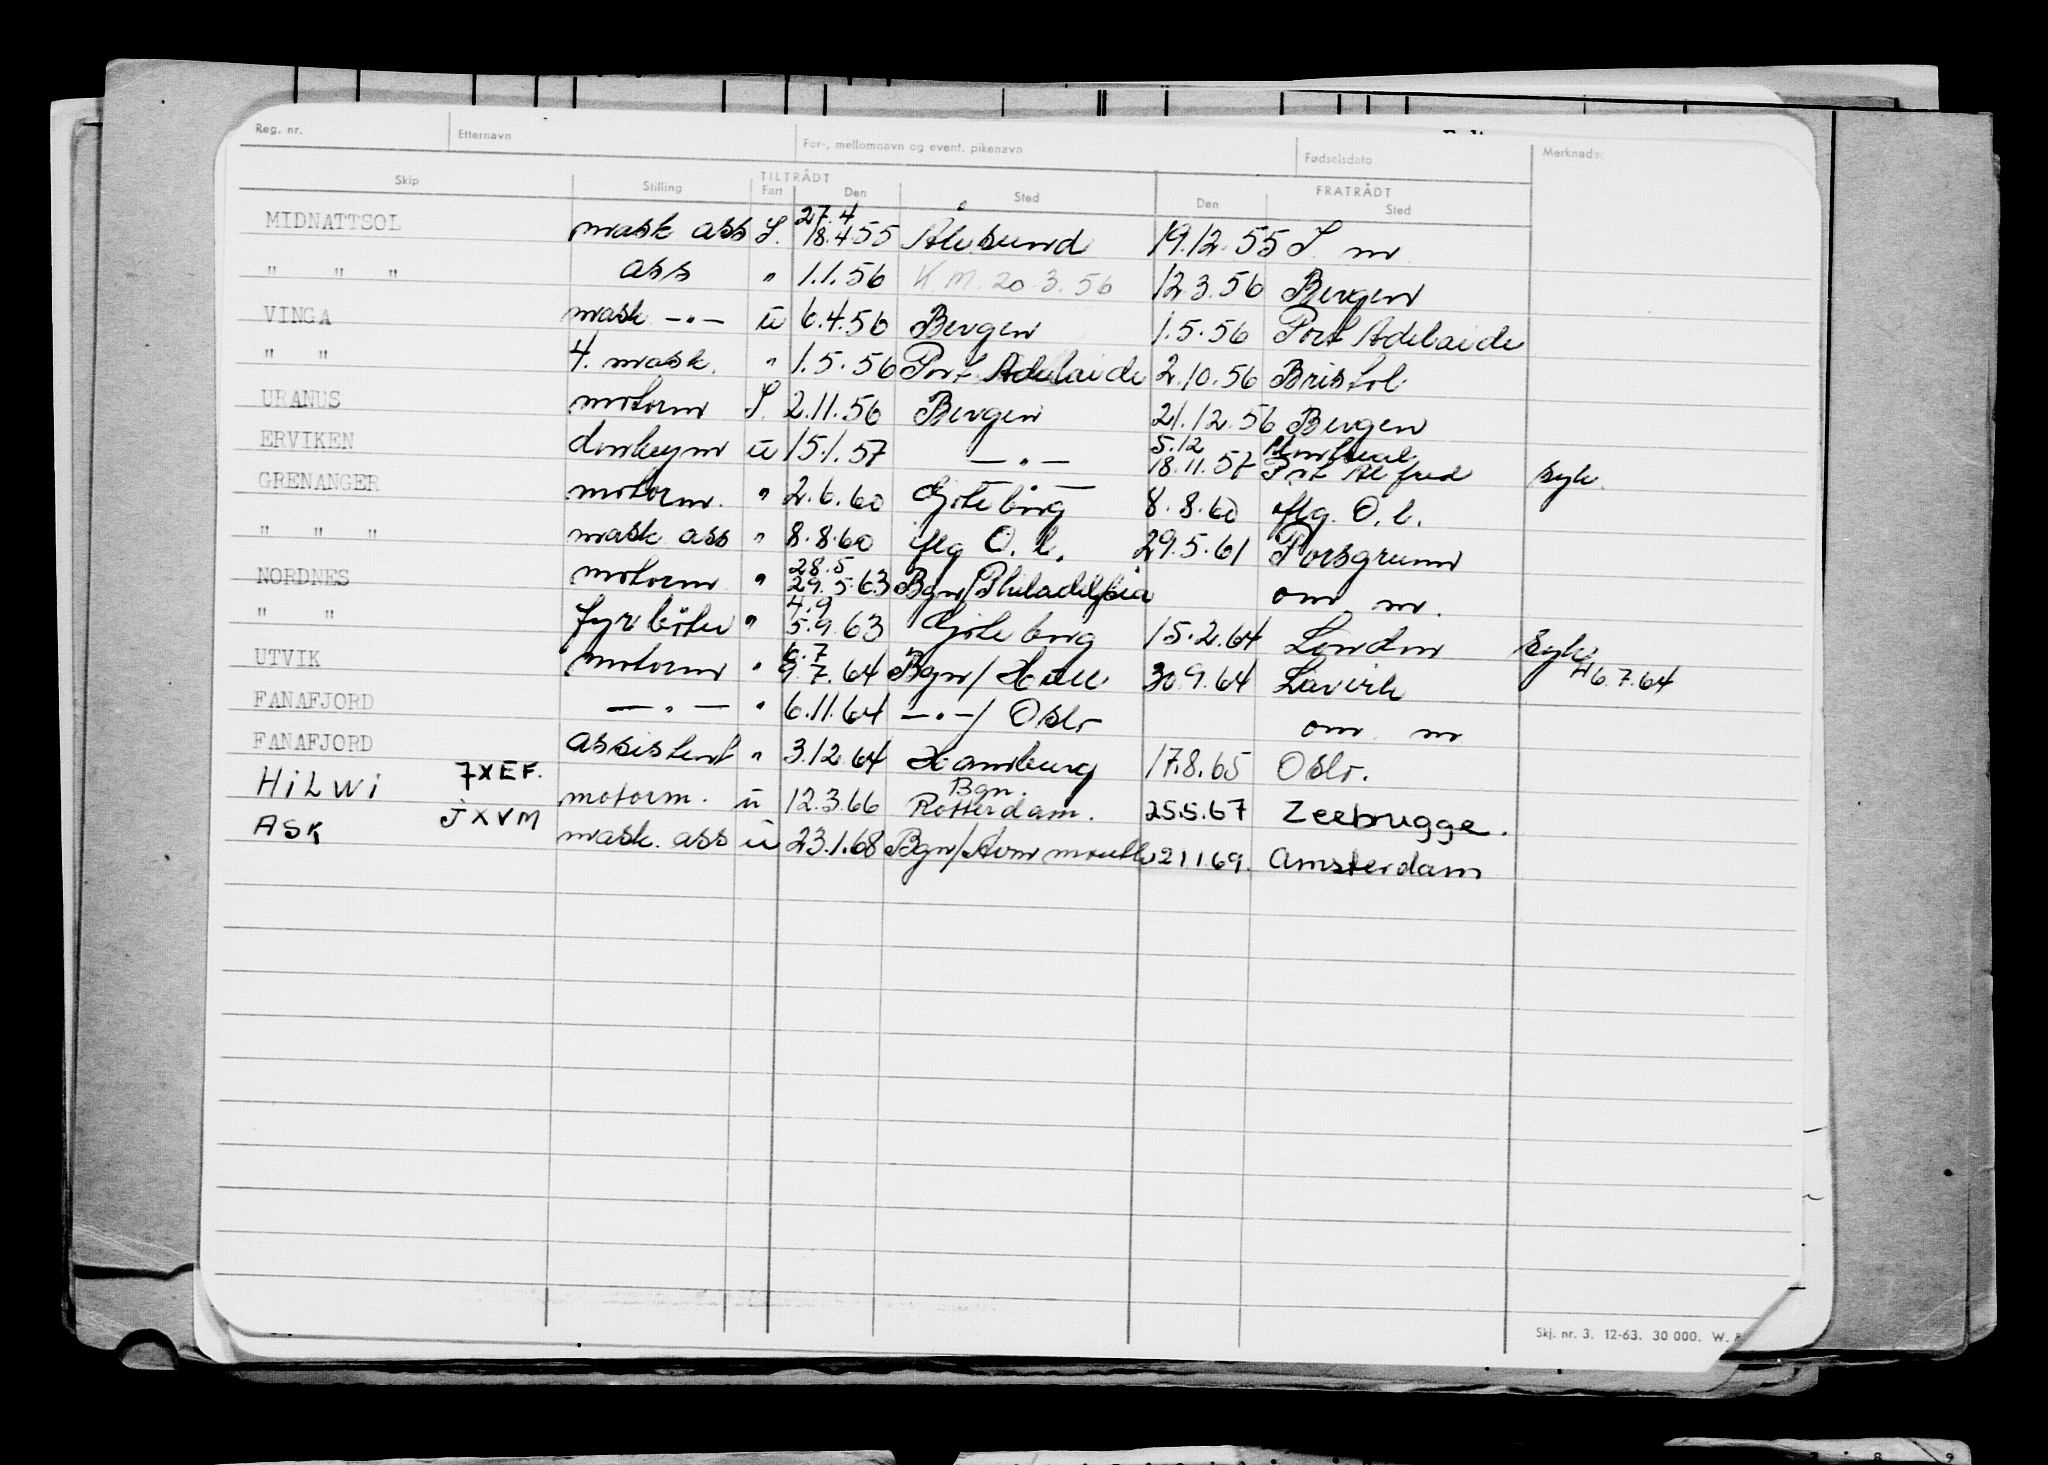 Reg. nr. Etternavn For-, mellomnavn og event. pikenavn Fødselsdato Merknader
Skip Stilling TILTRÅDT Fart Den Sted FRATRÅDT Den Sted
27.4
MIDNATTSOL mask ass S. 18.4 55 Ålesund 19.12.55 S. m
" " " ass " 1.1.56 K M. 20.3.56 12.3.56 Bergen
VINGA mask —"— u 6.4.56 Bergen 1.5.56 Port Adelaide
" " 4. mask. " 1.5.56 Port Adelaide 2.10.56 Bristol
URANUS motorm S. 2.11.56 Bergen 21.12.56 Bergen
5.12 Montreal
ERVIKEN donkeym u 15.1.57 —"— 18.11.57 Port Alfred syk.
GRENANGER motorm. " 2.6.60 Göteborg 8.8.60 iflg. O.l.
" " " mask ass " 8.8.60 iflg O.l. 29.5.61 Porsgrunn
28.5
NORDNES motorm " 29.5.63 Bgn/Philadelphia om m.
4.9
" " fyrböter " 5.9.63 Göteborg 15.2.64 London Syk.
6.7
UTVIK motorm " 9.7.64 Bgn/Hull 30.9.64 Lavik 6.7.64
FANAFJORD —"— " 6.11.64 —"—/ Oslo om m
FANAFJORD assistent " 3.12.64 Hamburg 17.8.65 Oslo.
Bgn.
HiLWi 7XEF. motorm. u 12.3.66 Rotterdam. 25.5.67 Zeebrugge.
ASK JXVM mask. ass u 23.1.68 Bgn/Avonmouth 21.1.69. Amsterdam
Skj. nr. 3. 12-63. 30 000. W.